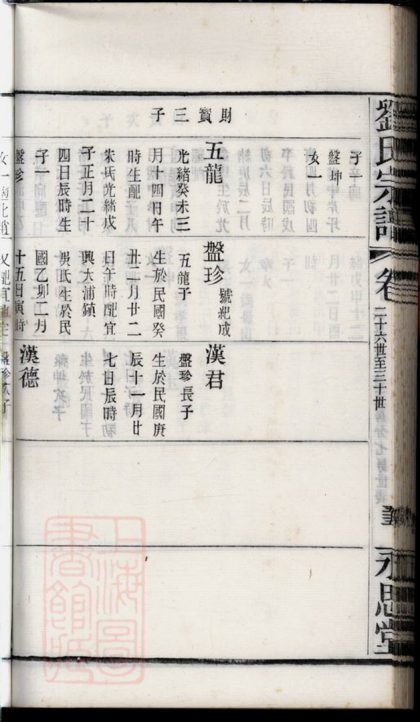 劉氏宗譜
卷
二十六世至三十世
永思堂
子一
盤坤
女
財寶三子
五龍
光緒癸未三
月十四日午
時生配
朱氏光緒戊
子正月二十
四日辰時生
子一
盤珍
盤珍 號紀成
五龍子
生於民國癸
丑二月廿二
日午時配宜
興大浦鎮
吳氏生於民
國乙卯二月
十五日寅時
漢君
盤珍長子
生於民國庚
辰十一月廿
七日辰時
漢德
上海圖書館藏